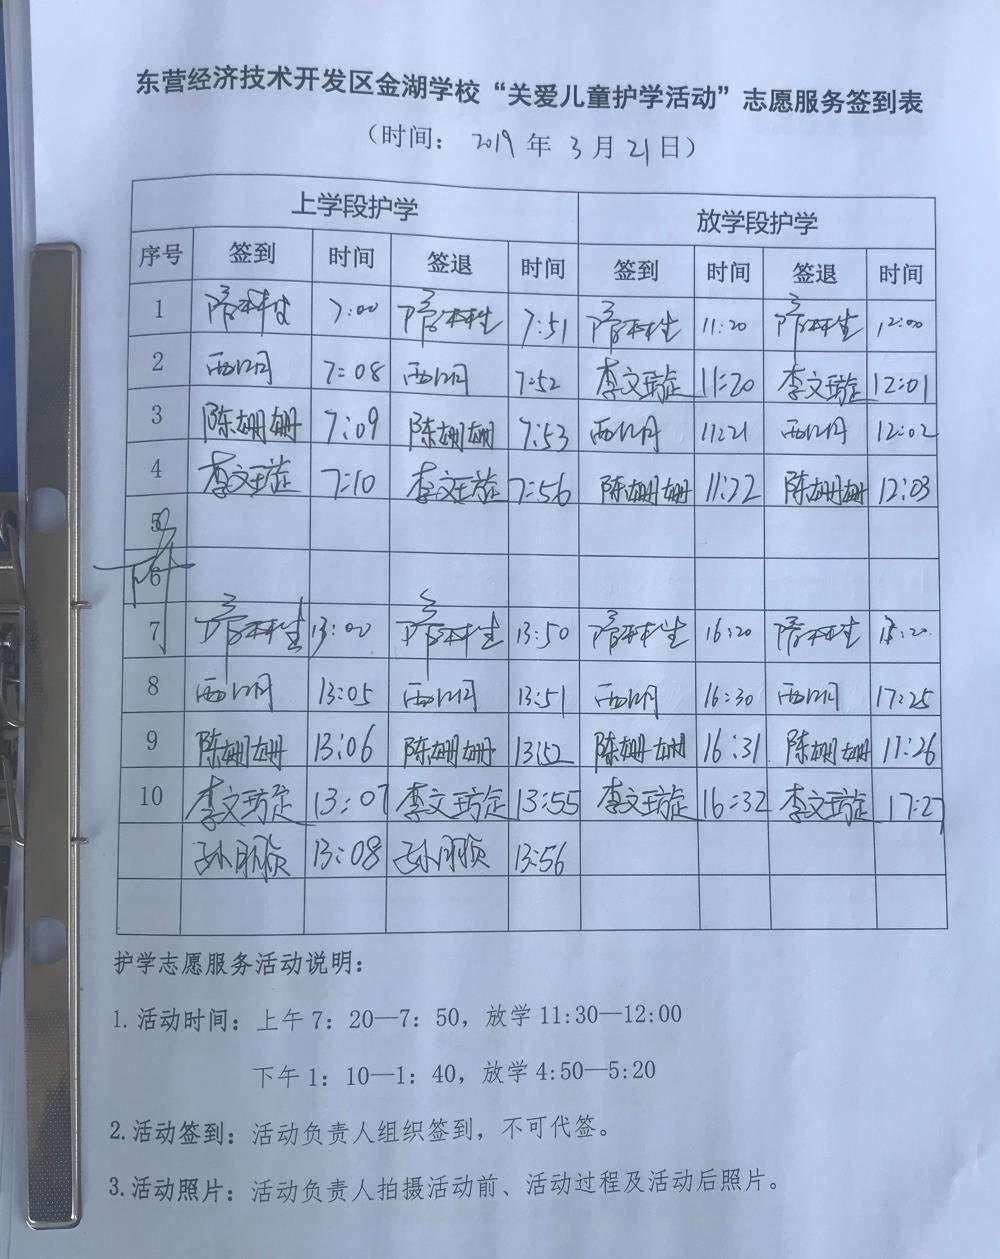 东营经济技术开发区金湖学校“关爱儿童护学活动”志愿服务签到表
（时间： 2019 年 3 月 21 日）
上学段护学 放学段护学
序号 签到 时间 签退 时间 签到 时间 签退 时间
1 7:00 7:51 11:20 12:00
2 7:08 7:52 李文璇 11:20 李文璇 12:01
3 陈姗姗 7:09 陈姗姗 7:53 11:21 12:02
4 李文璇 7:10 李文璇 7:56 陈姗姗 11:22 陈姗姗 12:03
5
6
7 13:00 13:50 16:20
8 13:05 13:51 16:30 17:25
9 陈姗姗 13:06 陈姗姗 13:52 陈姗姗 16:31 陈姗姗 17:26
10 李文璇 13:07 李文璇 13:55 李文璇 16:32 李文璇 17:27
13:08 13:56
护学志愿服务活动说明：
1. 活动时间：上午 7：20—7：50，放学 11:30—12:00
下午 1：10—1：40，放学 4:50—5:20
2. 活动签到：活动负责人组织签到，不可代签。
3. 活动照片：活动负责人拍摄活动前、活动过程及活动后照片。